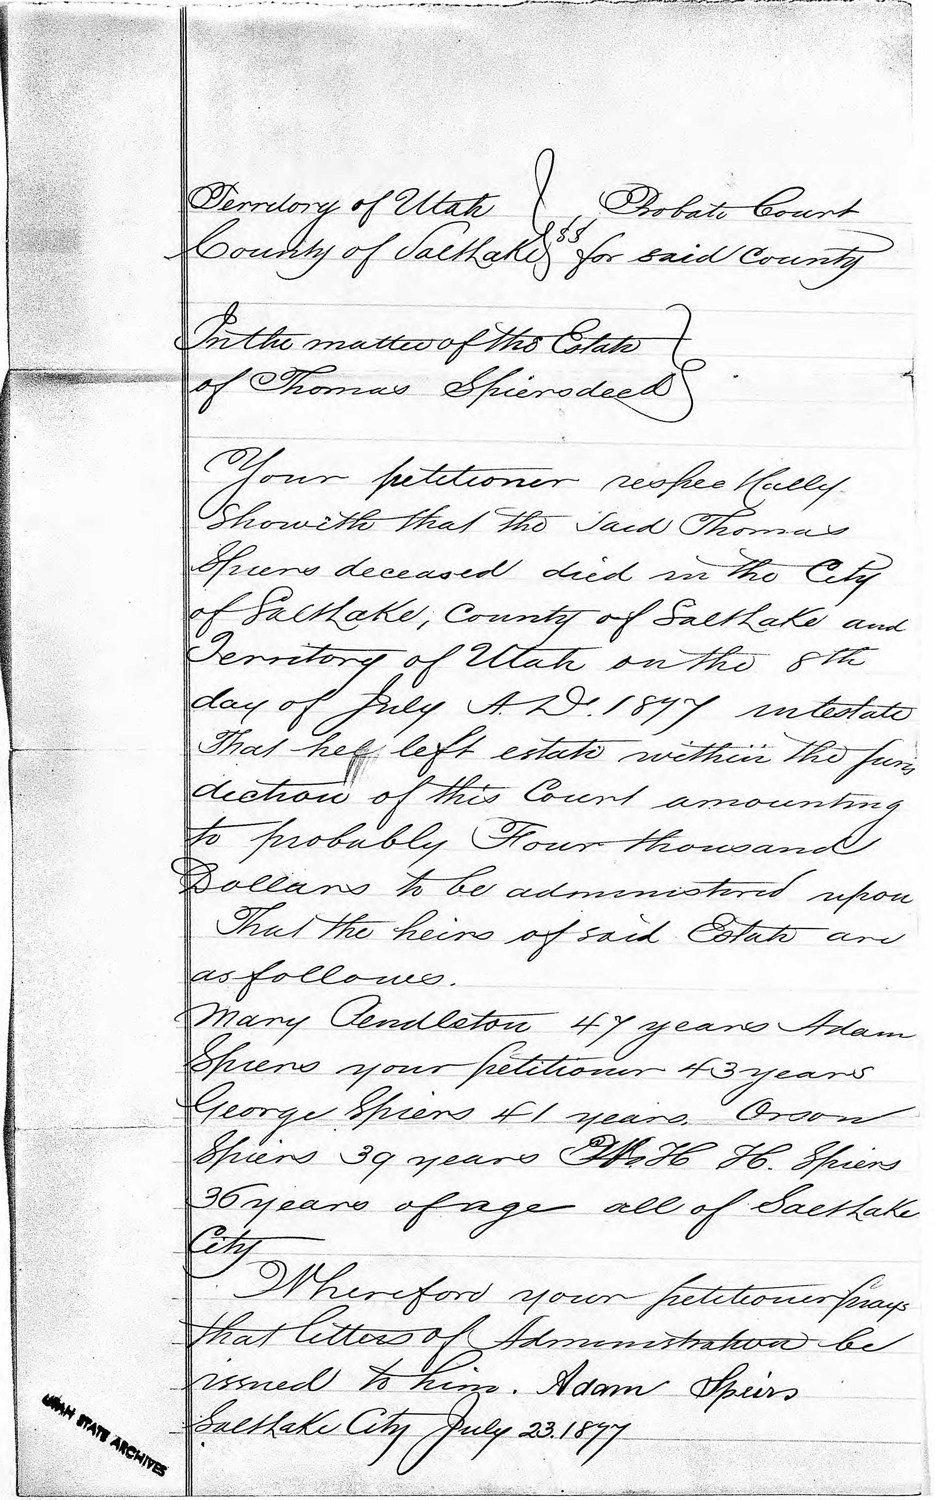 Territory of Utah } Probate Court
County of SaltLake } ss for said County
In the matter of the Estate }
of Thomas Spiers deced }
Your petitioner respectfully
Showeth that the said Thomas
Spiers deceased died in the City
of SaltLake, County of SaltLake and
Territory of Utah on the 8th
day of July A.D. 1877 intestate
That he left estate within the juris
diction of this Court amounting
to probably Four thousand
Dollars to be administered upon
That the heirs of said Estate are
as follows.
Mary Pendleton 47 years Adam
Spiers your petitioner 43 years
George Spiers 41 years. Orson
Spiers 39 years H. Spiers
36 years of age all of SaltLake
City
Wherefore your petitioner prays
that letters of Administration be
issued to him. Adam Speirs
SaltLake City July 23. 1877
UTAH STATE ARCHIVES